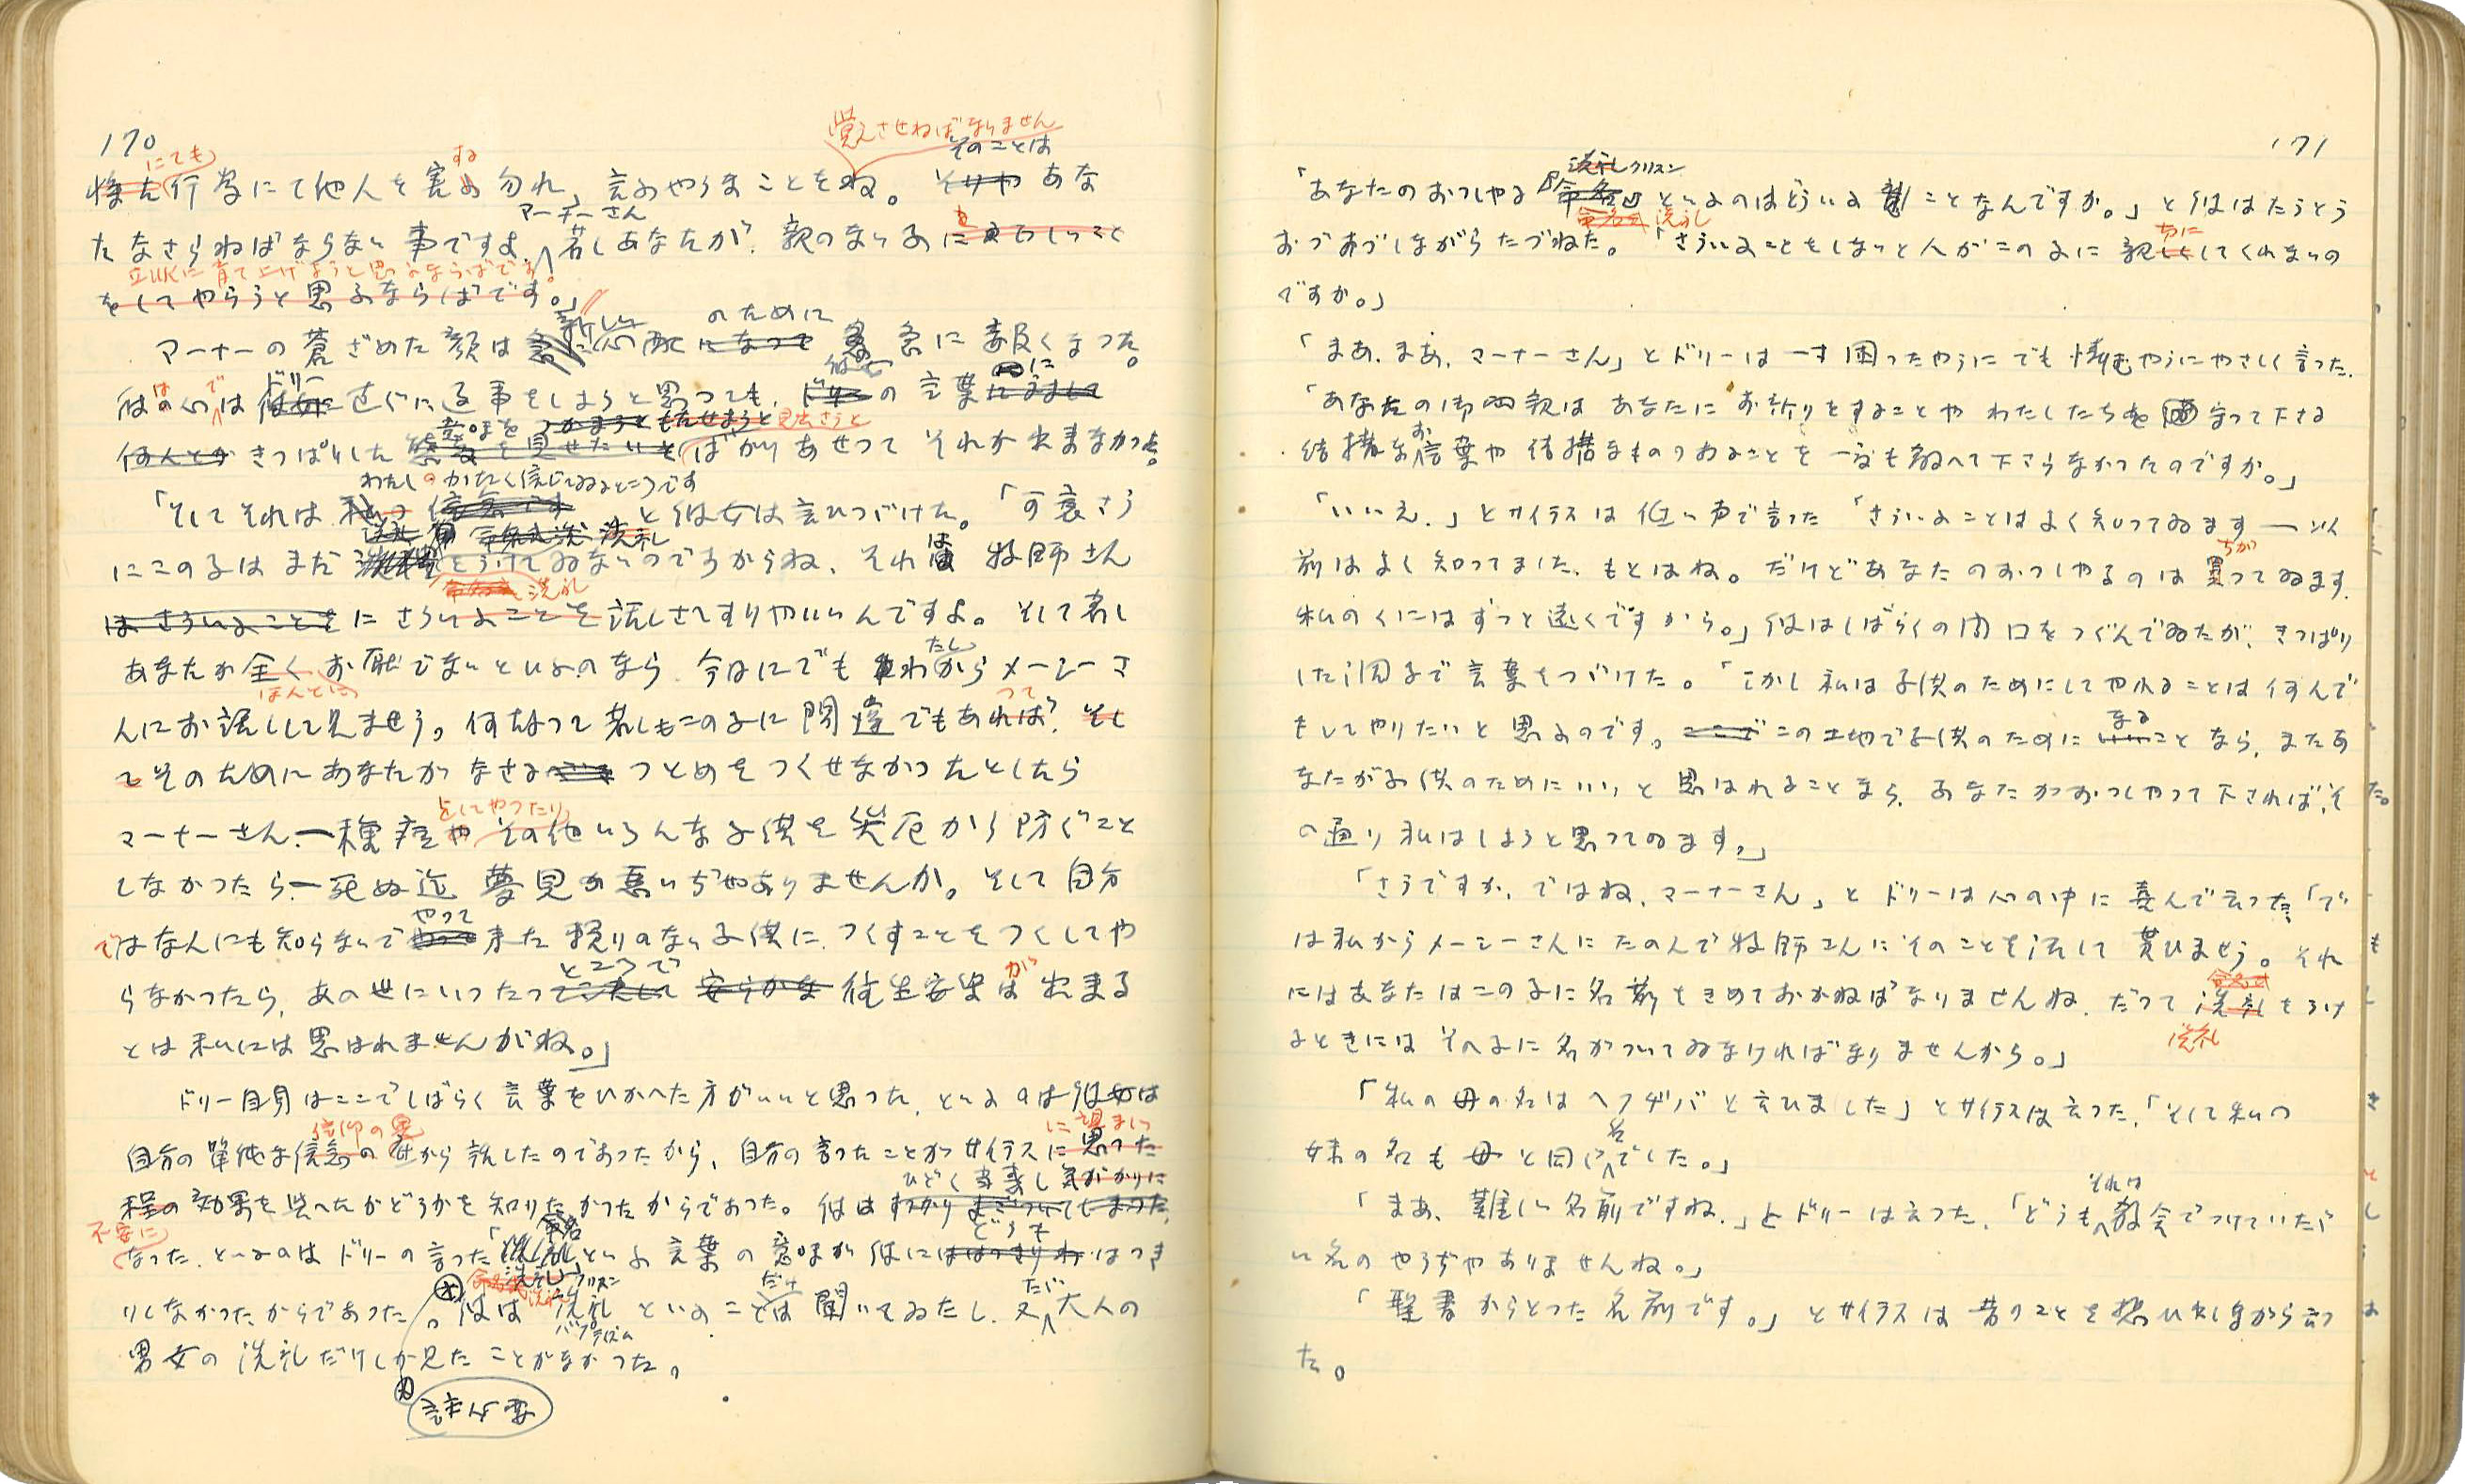 170
覚えさせねばなりません
にても する そのことは
行為にて他人を害する勿れ、言ふやうなことをね。それや あな
マーナーさん
たなさらねばならない事ですよ、若しあなたが、親のない子に正しいこと
立派に育て上げようと思ふならばです。
をしてやらうと思ふならばです。」
新しい のために
マーナーの蒼ざめた顔は急に心配になつて 急に赧くなつた。
は で ドリー 彼女 に
彼の心は彼女に直ぐに返事をしようと思つても、ドリーの言葉にたいして
意味を つかまうと もたせようと 見出さうと
何んとか きつぱりした態度を見せたいとばかりあせつてそれが出来なかつた。
わたしのかたく信じてゐるところです
「そしてそれは私の信念です と彼女は言ひつづけた。「可哀さう
洗礼 命名式 洗礼
にこの子はまだ をうけてゐないのですからね、それは 牧師さん
命名式 洗礼
はさういふことを にさういふことを話しさへすりやいいんですよ。そして若し
たし
あなたが全くお厭でないといふのなら、今日にでもわからメーシーさ
ほんとに つて
んにお話しして見ませう。何故つて若しもこの子に間違でもあれば、そし
てそのためにあなたがなさる つとめをつくせなかつたとしたら
をしてやつたり
マーナーさん、ー種痘や その他いろんな子供を災厄から防ぐこと
しなかつたらー死ぬ迄 夢見が悪いぢやありませんか。そして自分
やつて
ではなんにも知らないで 来た 頼りのない子供に、つくすことをつくしてや
ところで が
らなかつたら、あの世にいつたつて 安らかな 往生安楽は出来る
とは私には思はれませんがね。」
ドリー自身はここでしばらく言葉をひかへた方がいいと思つた、といふのは彼女は
信仰の に望ましい
自分の単純な信念の から話したのであつたから、自分の言つたことがサイラスに思つた
ひどく当惑し気がかりに
程の効果を与へたかどうかを知りたかつたからであつた。彼はすつかりまごついてしまつた、
不安に 命名 どうも
なつた、といふのはドリーの言つた「洗礼」といふ言葉の意味が彼にははつきりわ はつき
命名式 洗礼 クリスン だけ ただ
りしなかつたからであつた。彼は洗礼といふことは聞いてゐたし、又大人の
バプテイズム
男女の洗礼だけしか見たことがなかつた。
註必要
171
洗礼 クリスン
「あなたのおつしやる『命名』といふのはどういふことなんですか。」と彼はたうとう
命名式 洗礼 切に
おづおづしながらたづねた。「さういふことをしないと人がこの子に親しくしてくれないの
ですか。」
「まあ、まあ、マーナーさん」とドリーは一寸困つたやうにでも憐むやうにやさしく言つた。
「あなたの御両親はあなたにお祈りをすることやわたしたちを守つて下さる
お
結構な言葉や結構なもののあることを一度も教へて下さらなかつたのですか。」
「いいえ、」とサイラスは低い声で言つた「さういふことはよく知つてゐますー以
ちが
前はよく知つてました、もとはね。だけどあなたのおつしやるのは異つてゐます、
私のくにはずつと遠くですから。」彼はしばらくの間口をつぐんでゐたが、きつぱり
した調子で言葉をつづけた。「しかし私は子供のためにしてやれることは何んで
なる
もしてやりたいと思ふのです。ここで この土地で子供のためにいいことなら、またあ
なたが子供のためにいいと思はれることなら、あなたがおつしやつて下されば、そ
の通り私はしようと思つてゐます。」
「さうですか、ではね、マーナーさん」とドリーは心の中に喜んで云つた、「で
は私からメーシーさんにたのんで牧師さんにそのことを話して貰ひませう。それ
命名式
にはあなたはこの子に名前をきめておかねばなりませんね、だつて洗礼をうけ
洗礼
るときにはその子に名がついてゐなければなりませんから。」
「私の母の名はヘフヂバと云ひました」とサイラスは云つた、「そして私の
名
妹の名も母と同じでした。」
それは
「まあ、難しい名前ですね、」とドリーは云つた、「どうも教会でつけていただ
い名のやうぢやありませんね。」
「聖書からとつた名前です。」とサイラスは昔のことを想ひ出しながら云つ
た。